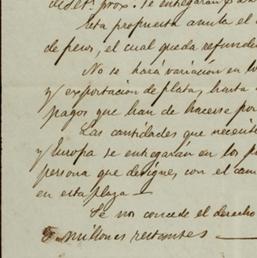 de Set. prox. se entregarán
Esta propuesta anula el
de pesos, el cual queda refundi
No se hará variación en lo
y exportacion de platas, hasta
pagos que han de hacerse por
Las cantidades que necesite
y Europa se entregarán en los p
persona que designe, con el cam
en esta plaza —
Se nos concede el derecho
millones restantes —